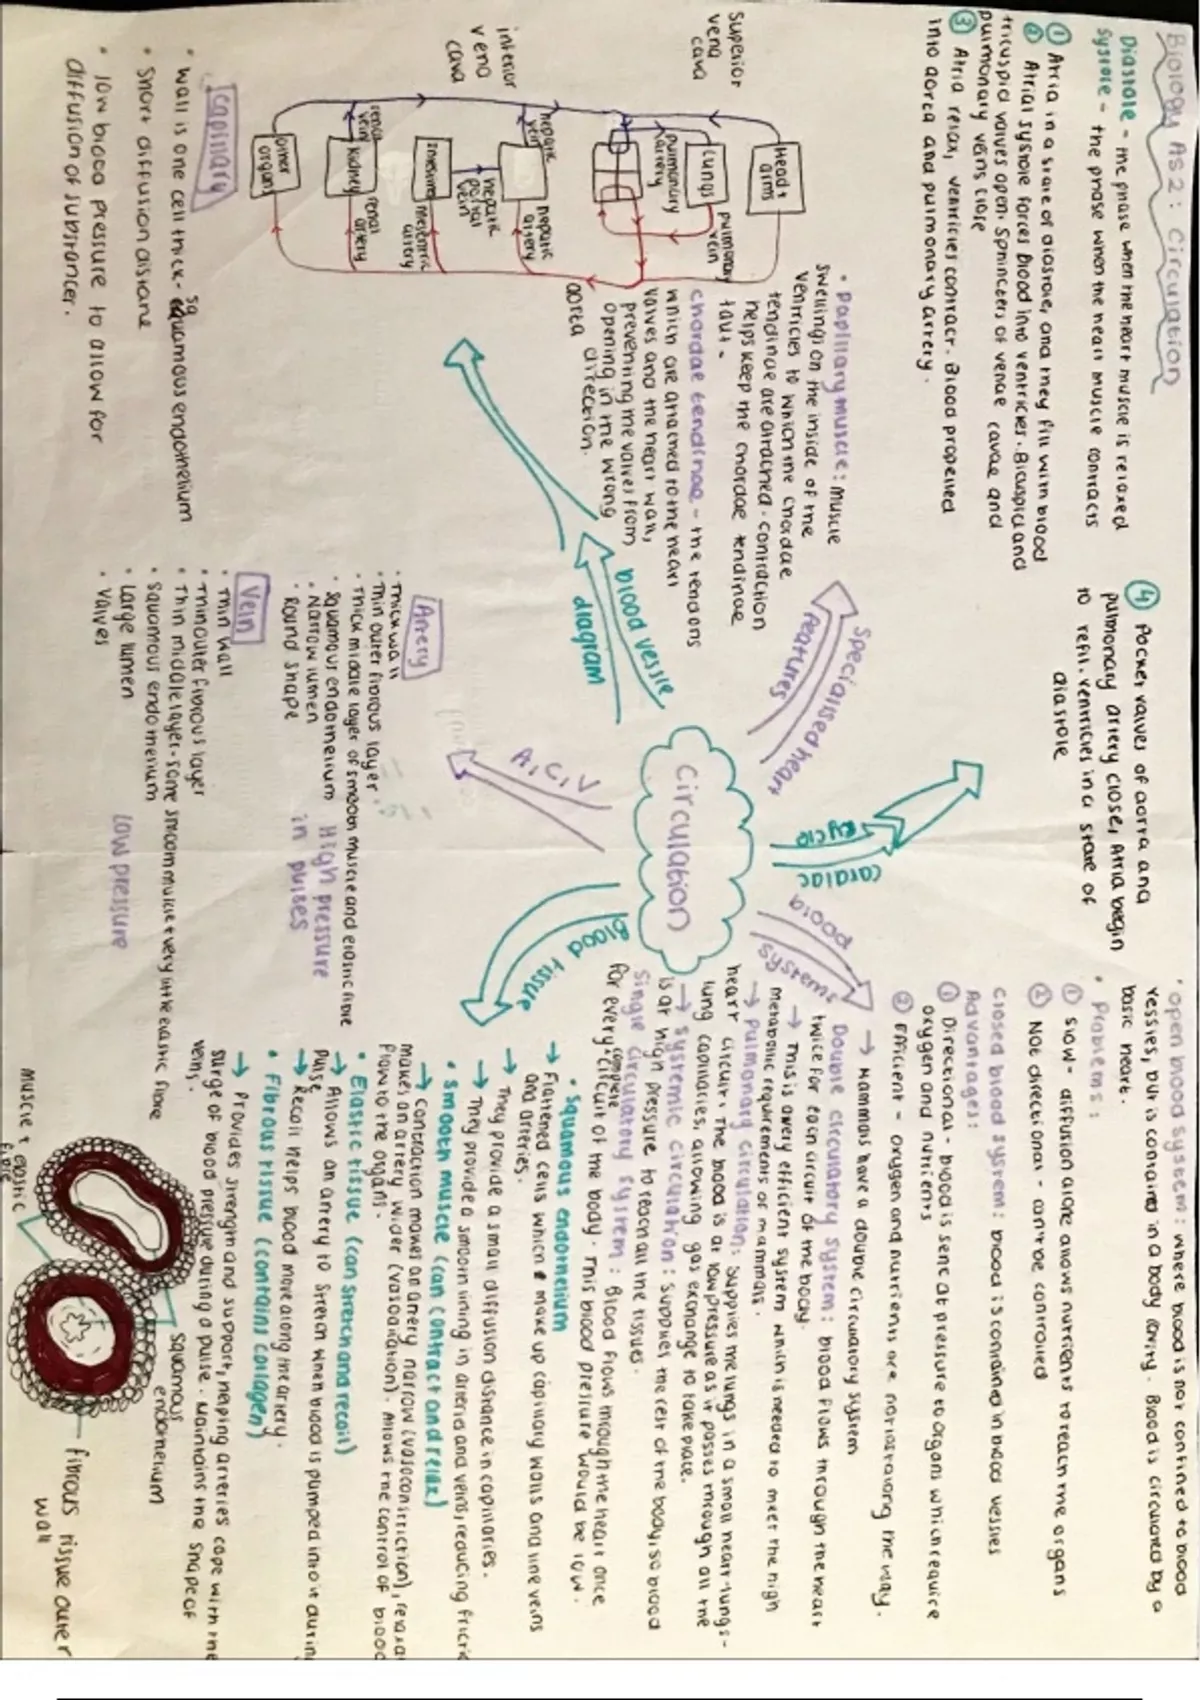 Biology AS 2: Circulation
Diastole - the phase when the heart muscle is relaxed
Systole - the phase when the heart muscle contracts
① Atria in a state of diastole, and they fill with blood
② Atrial systole forces blood into ventricles. Bicuspid and
tricuspid valves open. Sphincters of venae cavae and
pulmonary veins close
③ Atria relax, ventricles contract. Blood propelled
into aorta and pulmonary artery.
④ Pocket valves of aorta and
pulmonary artery close, Atria begin
to refill. Ventricles in a state of
diastole
• open blood system: where blood is not confined to blood
vessles, but is contained in a body cavity. Blood is circulated by a
basic heart.
• Problems:
① Slow - diffusion alone allows nutrients to reach the organs
② Not directional - can't be controlled
Closed blood system: blood is contained in blood vessles
Advantages:
① Directional - blood is sent at pressure to organs which require
oxygen and nutrients
② Efficient - oxygen and nutrients are not lost along the way.
→ Mammals have a double circulatory system
Double circulatory system: blood flows through the heart
twice for each circuit of the body.
→ This is a very efficient system which is needed to meet the high
metabolic requirements of mammals.
→ Pulmonary circulation: supplies the lungs in a small heart-lungs-
heart circuit. The blood is at low pressure as it passes through all the
lung capillaries, allowing gas exchange to take place.
→ Systemic circulation: supplies the rest of the body, so blood
is at high pressure to reach all the tissues.
Single circulatory system: Blood flows through the heart once
for every complete circuit of the body. This blood pressure would be low.
Superior
vena
cava
inferior
vena
cava
Head +
arms
Lungs
pulmonary
artery
pulmonary
vein
hepatic
vein
hepatic
artery
hepatic
portal
vein
mesenteric
artery
renal
vein
kidney
renal
artery
other
organs
aorta
• Papillary muscle: muscle
swellings on the inside of the
ventricles to which the chordae
tendinae are attached. contraction
helps keep the chordae tendinae
taut.
chordae tendinae - the tendons
which are attached to the heart
valves and the heart wall,
preventing the valves from
opening in the wrong
direction.
Specialised heart
features
cardiac
cycle
blood
systems
circulation
blood vessle
diagram
A, C, V
Blood tissue
Capillary
• wall is one cell thick - squamous endothelium
• Short diffusion distance
• low blood pressure to allow for
diffusion of substances.
Artery
• Thick wall
• Thin outer fibrous layer
• Thick middle layer of smooth muscle and elastic fibre
• squamous endothelium
• Narrow lumen
• Round shape
High pressure
in pulses
Vein
• Thin wall
• Thin outer fibrous layer
• Thin middle layer - some smooth muscle + very little elastic fibre
• squamous endothelium
• Large lumen
• valves
Low pressure
• Squamous endothelium
→ Flattened cells which make up capillary walls and line veins
and arteries.
→ They provide a small diffusion distance in capillaries.
→ They provide a smooth lining in arteries and veins, reducing
• Smooth muscle (can contract and relax)
→ Contraction makes an artery narrow (vasoconstriction),
makes an artery wider (vasodilation). Allows the control of blood
flow to the organs.
• Elastic tissue (can stretch and recoil)
→ Allows an artery to stretch when blood is pumped into it
pulse
→ Recoil helps blood move along the artery.
• Fibrous tissue (contains collagen)
→ Provides strength and support, helping arteries cope with the
surge of blood pressure during a pulse. Maintains the shape of
veins.
muscle + elastic
fibre
Squamous
endothelium
fibrous tissue outer
wall